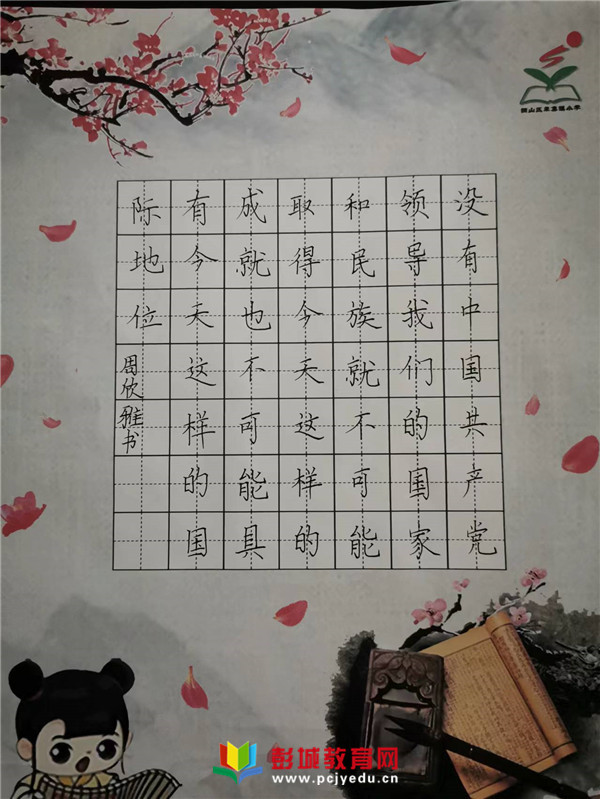 没有中国共产党
领导我们的国家
和民族就不可能
取得今天这样的
成就也不可能具
有今天这样的国
际地位
周欣雅书
彭城教育网
www.pcjyedu.cn